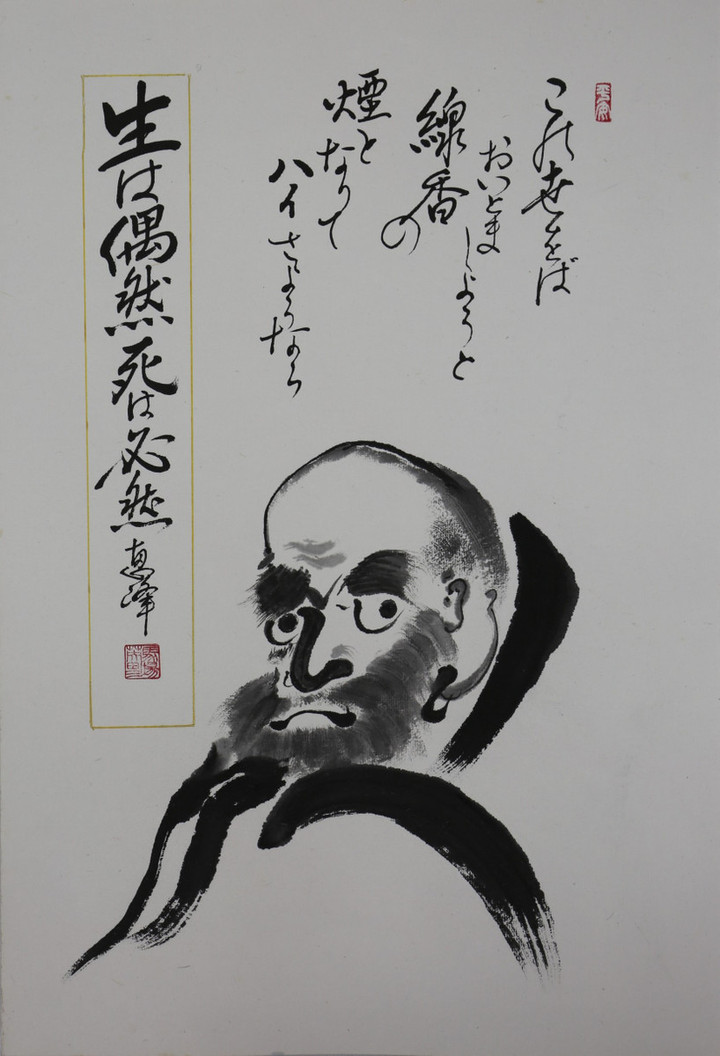 この世をば
おいとましようと
線香の
煙と
なりて
ハイさようなら
生は偶然死は必然
恵峰